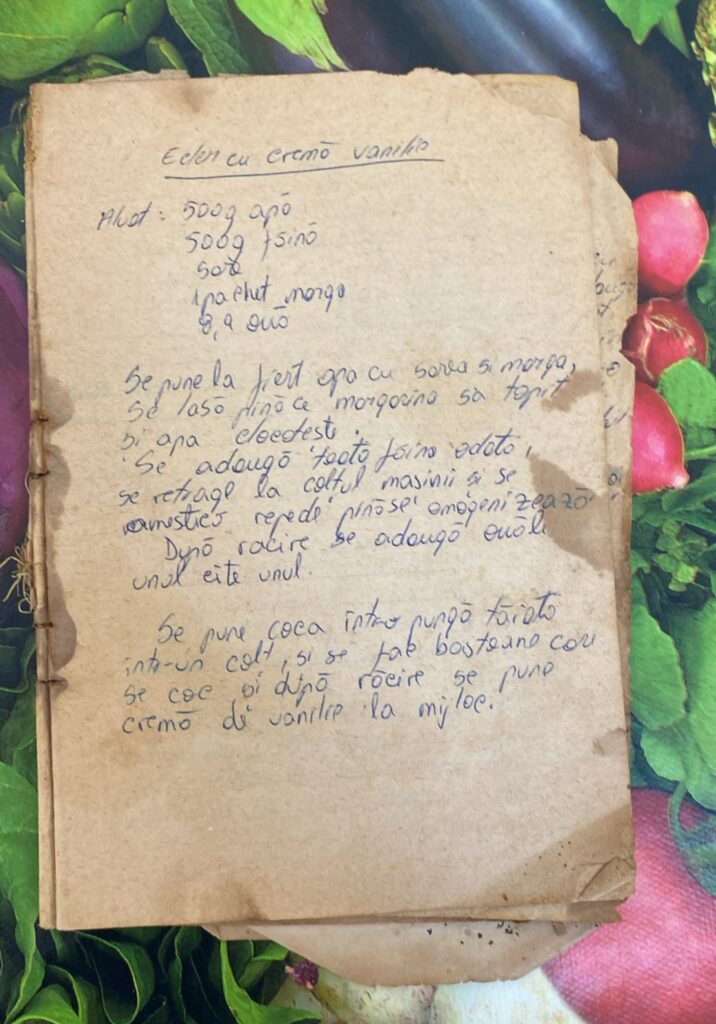 Ecler cu cremă vanilie
Aluat: 500g apă
500g făină
sare
1 pachet marga
8, 9 ouă
Se pune la fiert apa cu sarea si marga,
se lasă pînă ce margarina sa topit
si apa clocoteste.
Se adaugă toată făina odată,
se retrage la coltul masinii si se
amestică repede pină se omogenizează
După racire se adaugă ouăle
unul cite unul.
Se pune coca într-o pungă tăiată
intr-un colt, si se fac bastoane care
se coc si după răcire se pune
cremă de vanilie la mijloc.